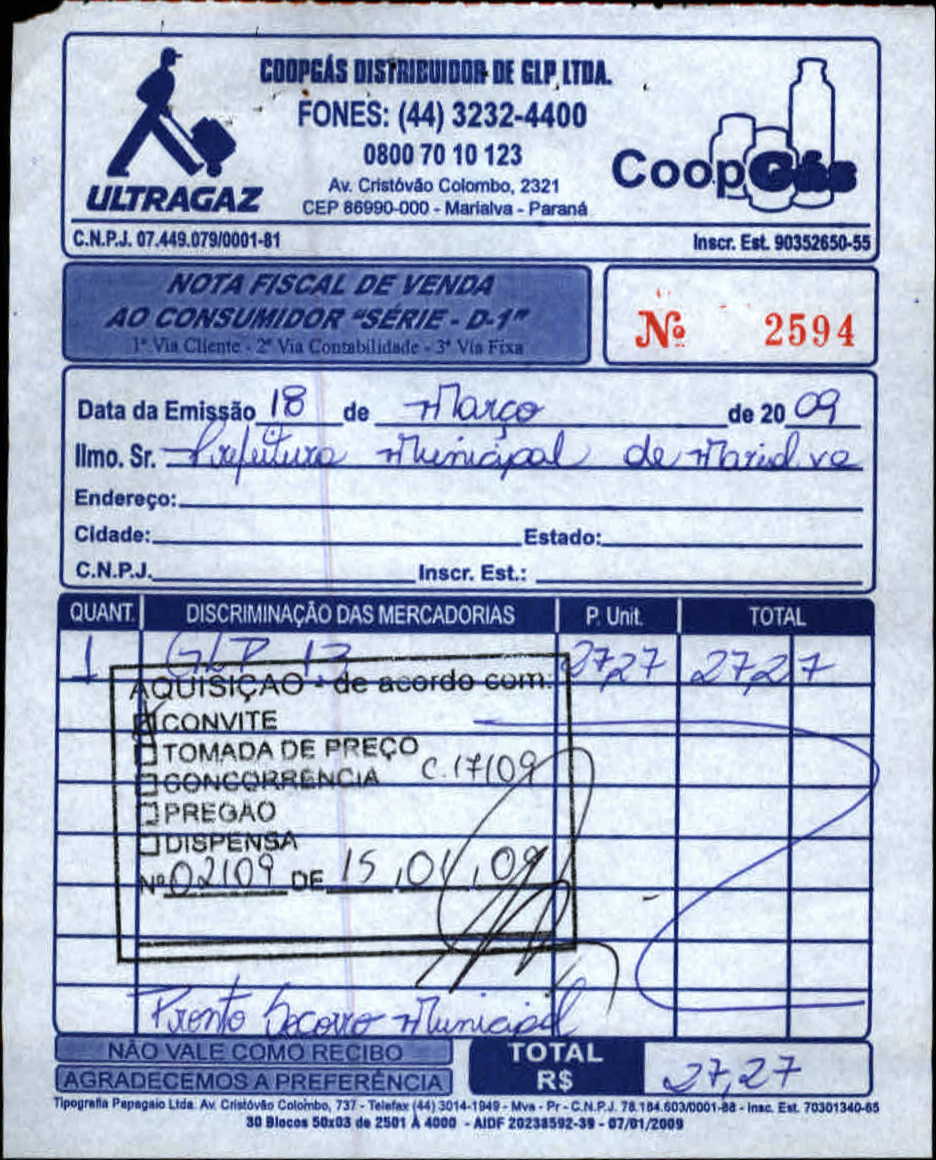 COOPGÁS DISTRIBUIDOR DE GLP LTDA.
FONES: (44) 3232-4400
0800 70 10 123
Av. Cristóvão Colombo, 2321
CEP 86990-000 - Marialva - Paraná
ULTRAGAZ
CoopGás
C.N.P.J. 07.449.079/0001-81 Inscr. Est. 90352650-55
NOTA FISCAL DE VENDA
AO CONSUMIDOR "SÉRIE - D-1"
1ª Via Cliente - 2ª Via Contabilidade - 3ª Via Fixa
Nº 2594
Data da Emissão 18 de Março de 20 09
Ilmo. Sr. Prefeitura Municipal de Marialva
Endereço:
Cidade: Estado:
C.N.P.J. Inscr. Est.:
QUANT. DISCRIMINAÇÃO DAS MERCADORIAS P. Unit. TOTAL
1 GLP 13 27,27 27,27
AQUISIÇAO - de acordo com.
CONVITE
TOMADA DE PREÇO
CONCORRENCIA C.17/09
PREGAO
DISPENSA
Nº 02/09 DE 15, 01, 09
Pronto Socorro Municipal
NÃO VALE COMO RECIBO
AGRADECEMOS A PREFERÊNCIA
TOTAL
R$ 27,27
Tipografia Papagaio Ltda. Av. Cristóvão Colombo, 737 - Telefax (44) 3014-1949 - Mva - Pr - C.N.P.J. 78.184.603/0001-88 - Insc. Est. 70301340-65
30 Blocos 50x03 de 2501 À 4000 - AIDF 20238592-39 - 07/01/2009